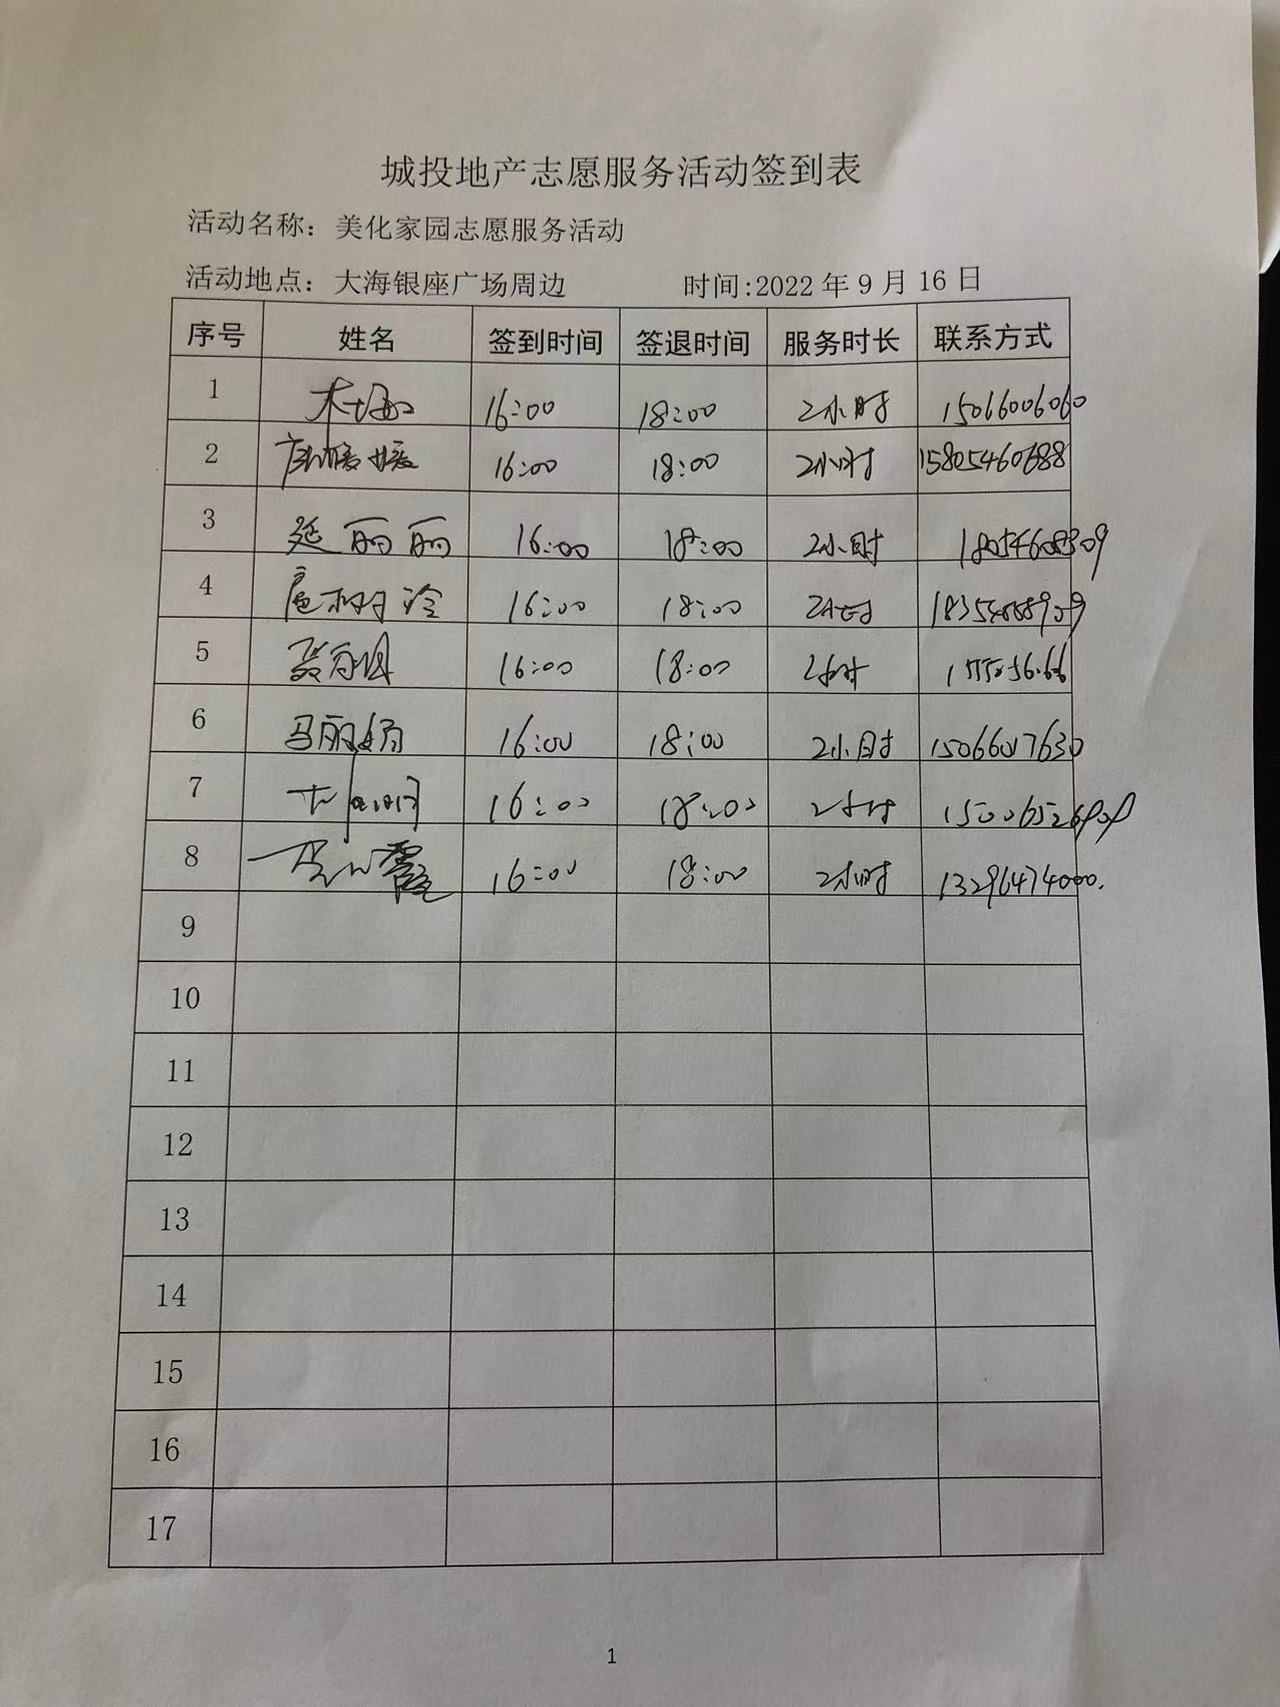 城投地产志愿服务活动签到表
活动名称：美化家园志愿服务活动
活动地点：大海银座广场周边 时间:2022年9月16日
序号 姓名 签到时间 签退时间 服务时长 联系方式
1 16:00 18:00 2小时 15066006060
2 16:00 18:00 2小时 15805460688
3 延丽丽 16:00 18:00 2小时 18054608309
4 16:00 18:00 2小时
5 16:00 18:00 2小时
6 马丽娟 16:00 18:00 2小时 15066017630
7 16:00 18:00 2小时
8 16:00 18:00 2小时 13296474000.
9
10
11
12
13
14
15
16
17
1